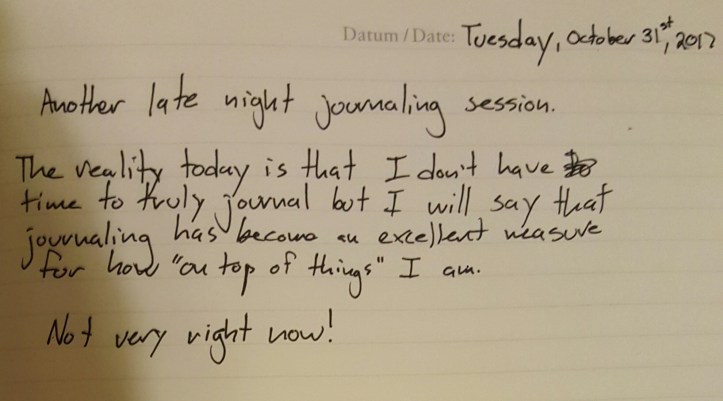 Datum / Date: Tuesday, October 31st, 2017
Another late night journaling session.
The reality today is that I don't have
time to truly journal but I will say that
journaling has become an excellent measure
for how "on top of things" I am.
Not very right now!